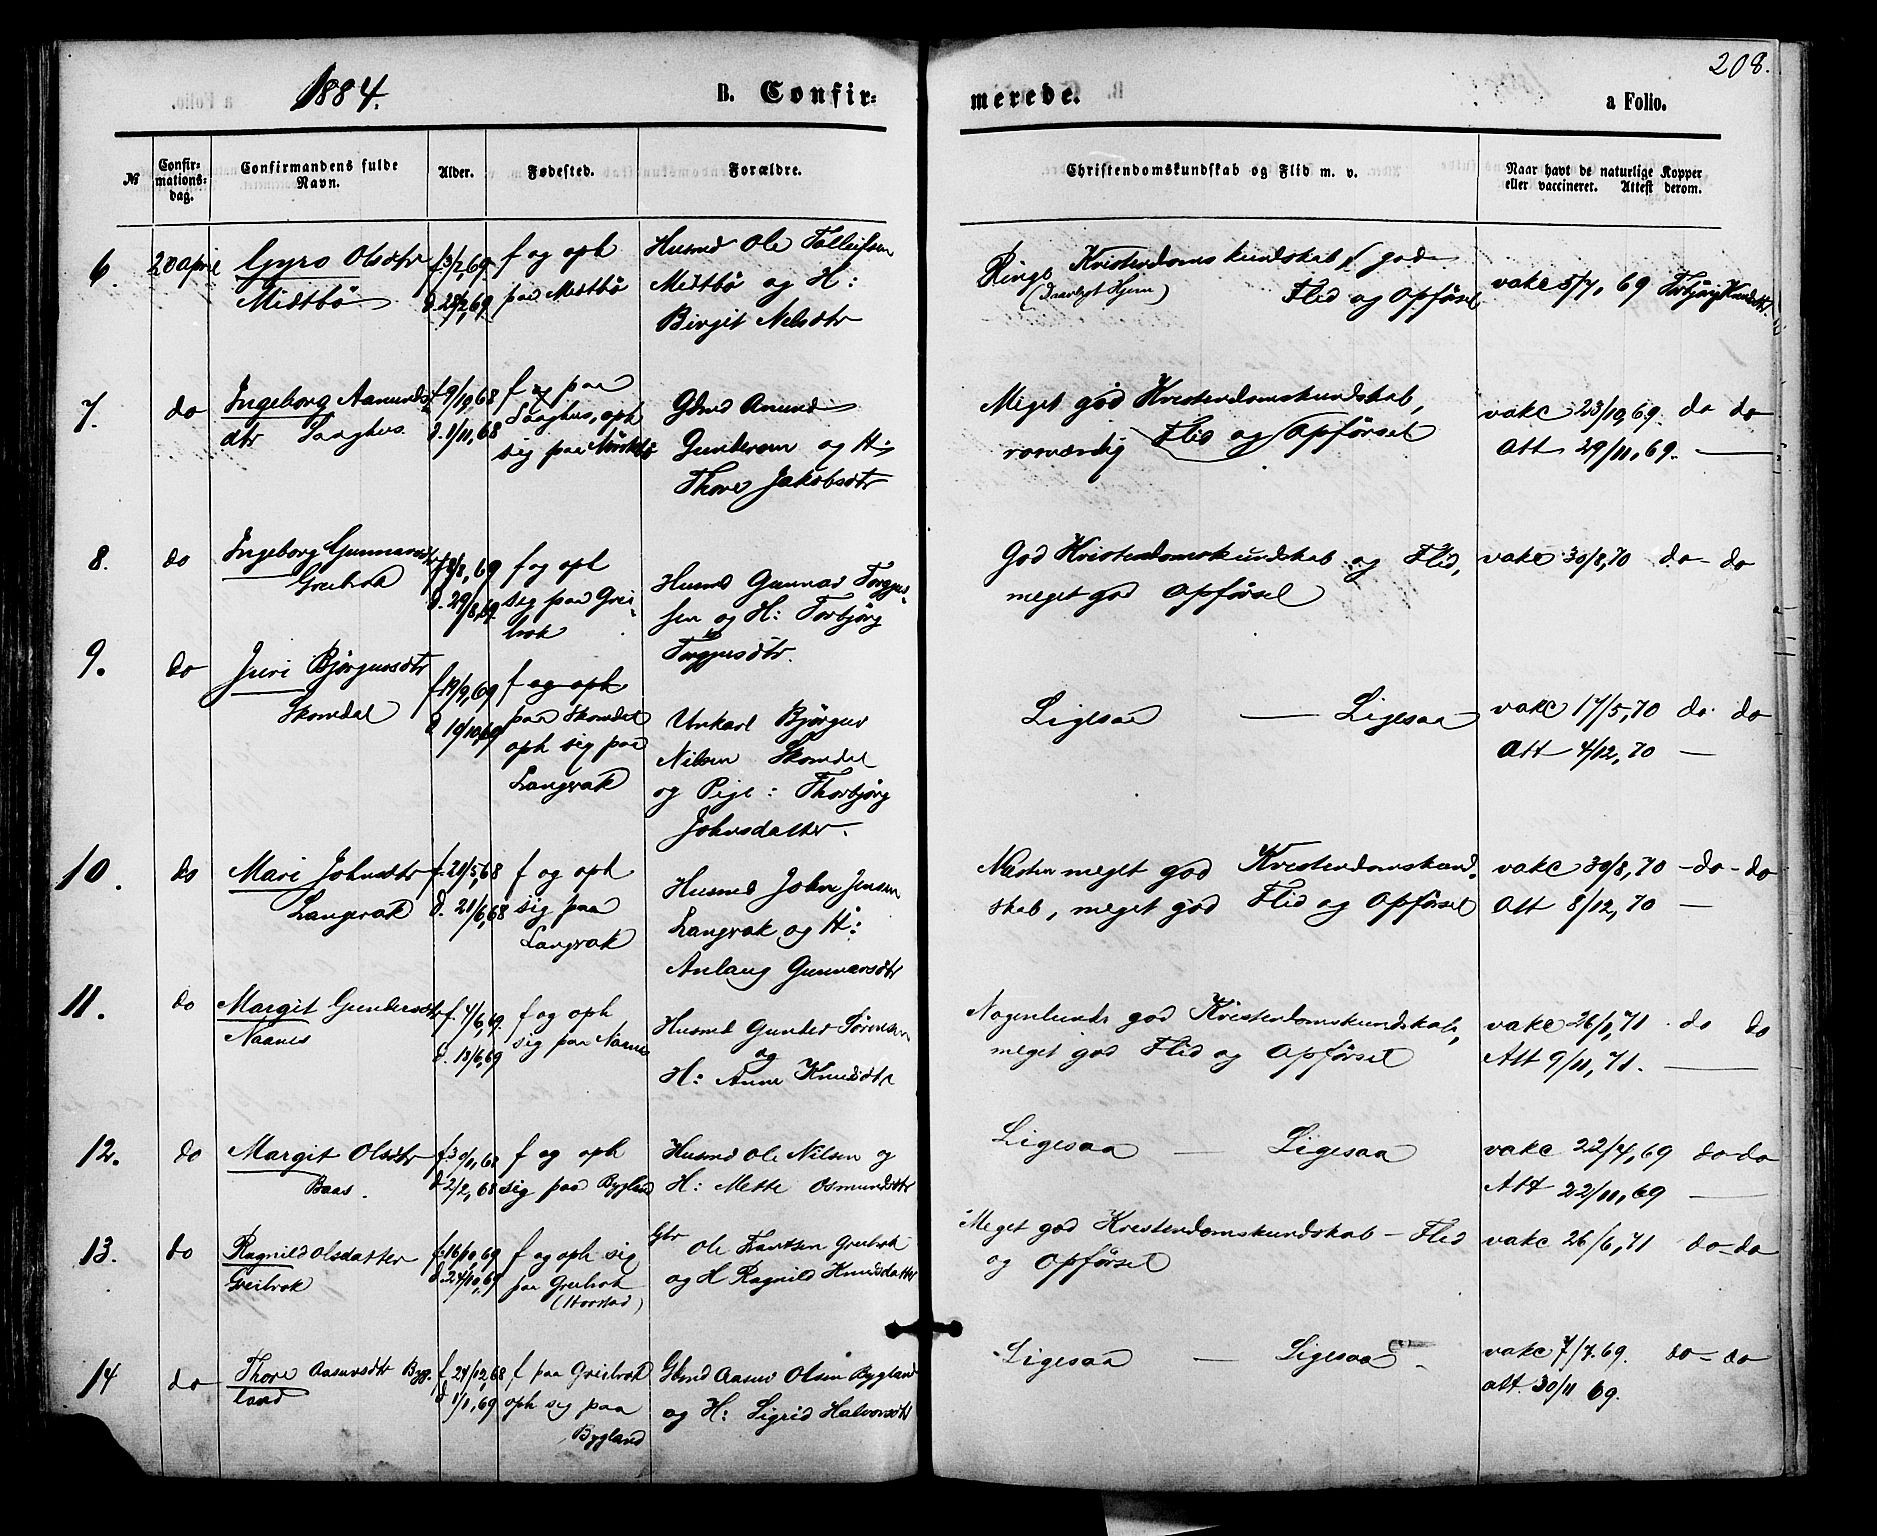 208.
1884.
B. Confir-
merede.
a Folio.
№
Confir-
mations-
dag.
Confirmandens fulde
Navn.
Alder.
Fødested.
Forældre.
Christendomskundskab og Flid m. v.
Naar havt de naturlige Kopper
eller vaccineret. Attest derom.
6. 20 april
Gyro Olsdtr
Midtbö
f. 3/2, 69
d. 28/2, 69
f og oph
paa Midtbö
Husmd Ole Tolleifsen
Midtbö og H:
Birgit Nelsdtr
Ringe Kristendomskundskab, god
(Daarligt Hjem) Flid og Opførsel
vakc 5/7, 69 Torbjörg Knudsdtr.
7. do
Ingeborg Aanunds
dtr Saaghus.
f 9/10, 68
d. 1/11, 68
f og paa
Saaghus, oph
sig paa
Gbmd Anund
Gundersen og H:
Thore Jakobsdtr
Meget god Kristendomskundskab,
rosværdig Flid og Opførsel
vakc 23/10, 69. do do
Att 29/11, 69. —
8. do
Ingeborg Gunnarsdtr
Greibrok
f 8/8, 69
d. 29/8, 69
f og oph
sig paa Grei-
brok
Husmd Gunnar Torgjus-
sen og H: Torbjörg
Torgjusdtr.
God Kristendomskundskab og Flid,
meget god Opførsel
vakc 30/8, 70 do- do
9. do
Juri Björgusdtr
Skomdal
f 19/9, 69
d 19/10, 69
f og oph
paa Skomdal
oph sig paa
Langrak
Unkarl Björguv
Nilsen Skomdal
og Pige: Thorbjörg
Johnsdatter.
Ligesaa — Ligesaa
vakc 17/5, 70 do. do
Att 4/12, 70 —
10. do
Mari Johnsdtr
Langrak
f. 20/5, 68
d. 21/6, 68
f og oph
sig paa
Langrak
Husmd John Jensen
Langrak og H:
Anlaug Gunnarsdtr
Næsten meget god Kristendomskund-
skab, meget god Flid og Opførsel
vakc 30/8, 70 - do - do
Att 8/12, 70 —
11. do
Margit Gundersdtr
Naanes
f. 4/6, 69.
d. 13/6, 69
f og oph
sig paa Naanes
Husmd Gunder Sörensen
og
H: Anne Knudsdtr
Nogenlunde god Kristendomskundskab,
meget god Flid og Opførsel
vakc 26/6, 71. do do
Att 9/11, 71. —
12. do
Margit Olsdtr
Baas.
f. 30/1, 68
d 2/2, 68
f og oph
sig paa Bygland
Husmd Ole Nilsen og
H: Mette Osmundsdtr
Ligesaa — Ligesaa
vakc 22/7, 69 do - do
Att 22/11, 69 —
13. do
Ragnild Olsdatter
Greibrok
f. 16/10, 69
d. 24/10, 69
f og oph sig
paa Greibrok
Gbr Ole Greibrok
og H Ragnild Knudsdatter
Meget god Kristendomskundskab - Flid
og Opførsel
vakc 26/6, 71 do - do
14 do
Thore Aasmdsdtr Byg-
land
f 24/12, 68
d 1/1, 69
f paa Greibrok
oph sig paa
Bygland
Gbmd Olsen Bygland
og H: Sigrid Halvorsdtr
Ligesaa — Ligesaa -
vakc 7/7. 69. do - do
att. 30/11 69.